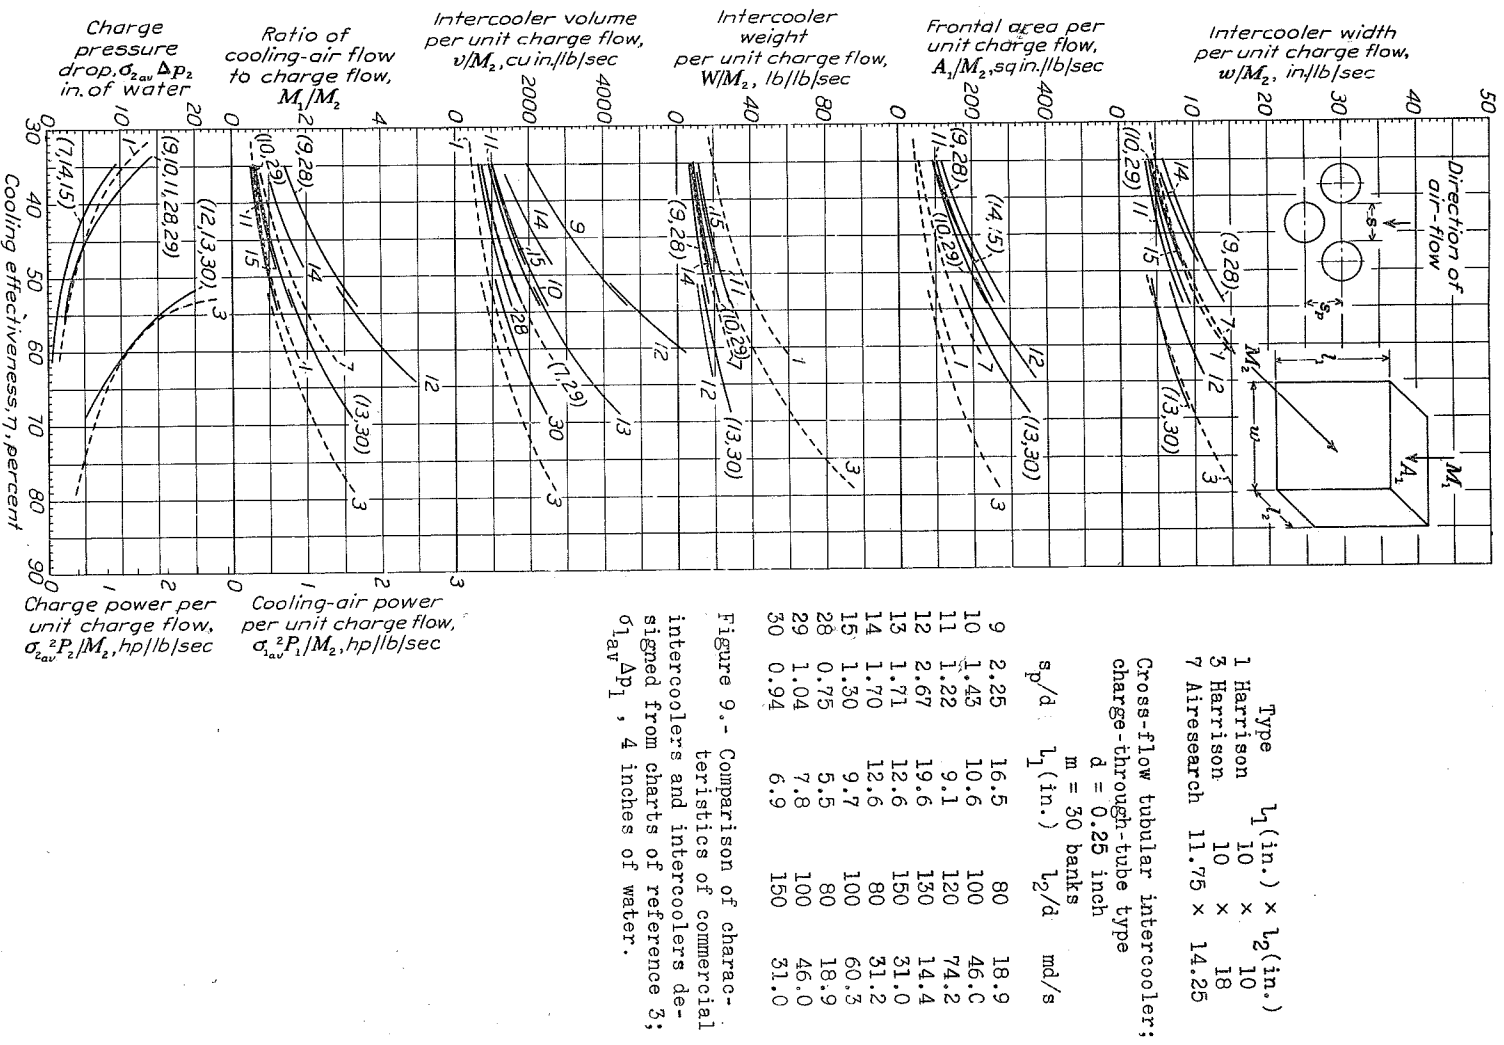 Charge
pressure
drop, σ₂ₐᵥ Δp₂
in. of water
Ratio of
cooling-air flow
to charge flow,
M₁/M₂
Intercooler volume
per unit charge flow,
v/M₂, cu in./lb/sec
Intercooler
weight
per unit charge flow,
W/M₂, lb/lb/sec
Frontal area per
unit charge flow,
A₁/M₂, sq in./lb/sec
Intercooler width
per unit charge flow,
w/M₂, in./lb/sec
0 10 20
0 2 4
0 2000 4000
0 40 80
0 200 400
0 10 20 30 40 50
30 40 50 60 70 80 90
Cooling effectiveness, η, percent
(7,14,15)
1
(9,10,11,28,29)
(12,13,30)
3
(10,29)
(9,28)
11
15
14
1
7
12
(13,30)
3
1
11
9
14
15
10
28
12
(7,29)
30
13
3
15
(9,28)
14
11
(10,29)
7
1
12
(13,30)
3
1
(9,28)
(10,29)
(14,15)
1
7
12
(13,30)
3
(10,29)
14
11
15
(9,28)
7
1
12
(13,30)
3
Direction of
air-flow
s
sₚ
M₂
l₁
w
l₂
A₁
M₁
0 1 2
0 1 2 3
Charge power per
unit charge flow,
σ₂ₐᵥ²P₂/M₂, hp/lb/sec
Cooling-air power
per unit charge flow,
σ₁ₐᵥ²P₁/M₂, hp/lb/sec
Type l₁(in.) × l₂(in.)
1 Harrison 10 × 10
3 Harrison 10 × 18
7 Airesearch 11.75 × 14.25
Cross-flow tubular intercooler;
charge-through-tube type
d = 0.25 inch
m = 30 banks
sₚ/d l₁(in.) l₂/d md/s
9 2.25 16.5 80 18.9
10 1.43 10.6 100 46.0
11 1.22 9.1 120 74.2
12 2.67 19.6 130 14.4
13 1.71 12.6 150 31.0
14 1.70 12.6 80 31.2
15 1.30 9.7 100 60.3
28 0.75 5.5 80 18.9
29 1.04 7.8 100 46.0
30 0.94 6.9 150 31.0
Figure 9.- Comparison of charac-
teristics of commercial
intercoolers and intercoolers de-
signed from charts of reference 3;
σ₁ₐᵥ Δp₁ , 4 inches of water.